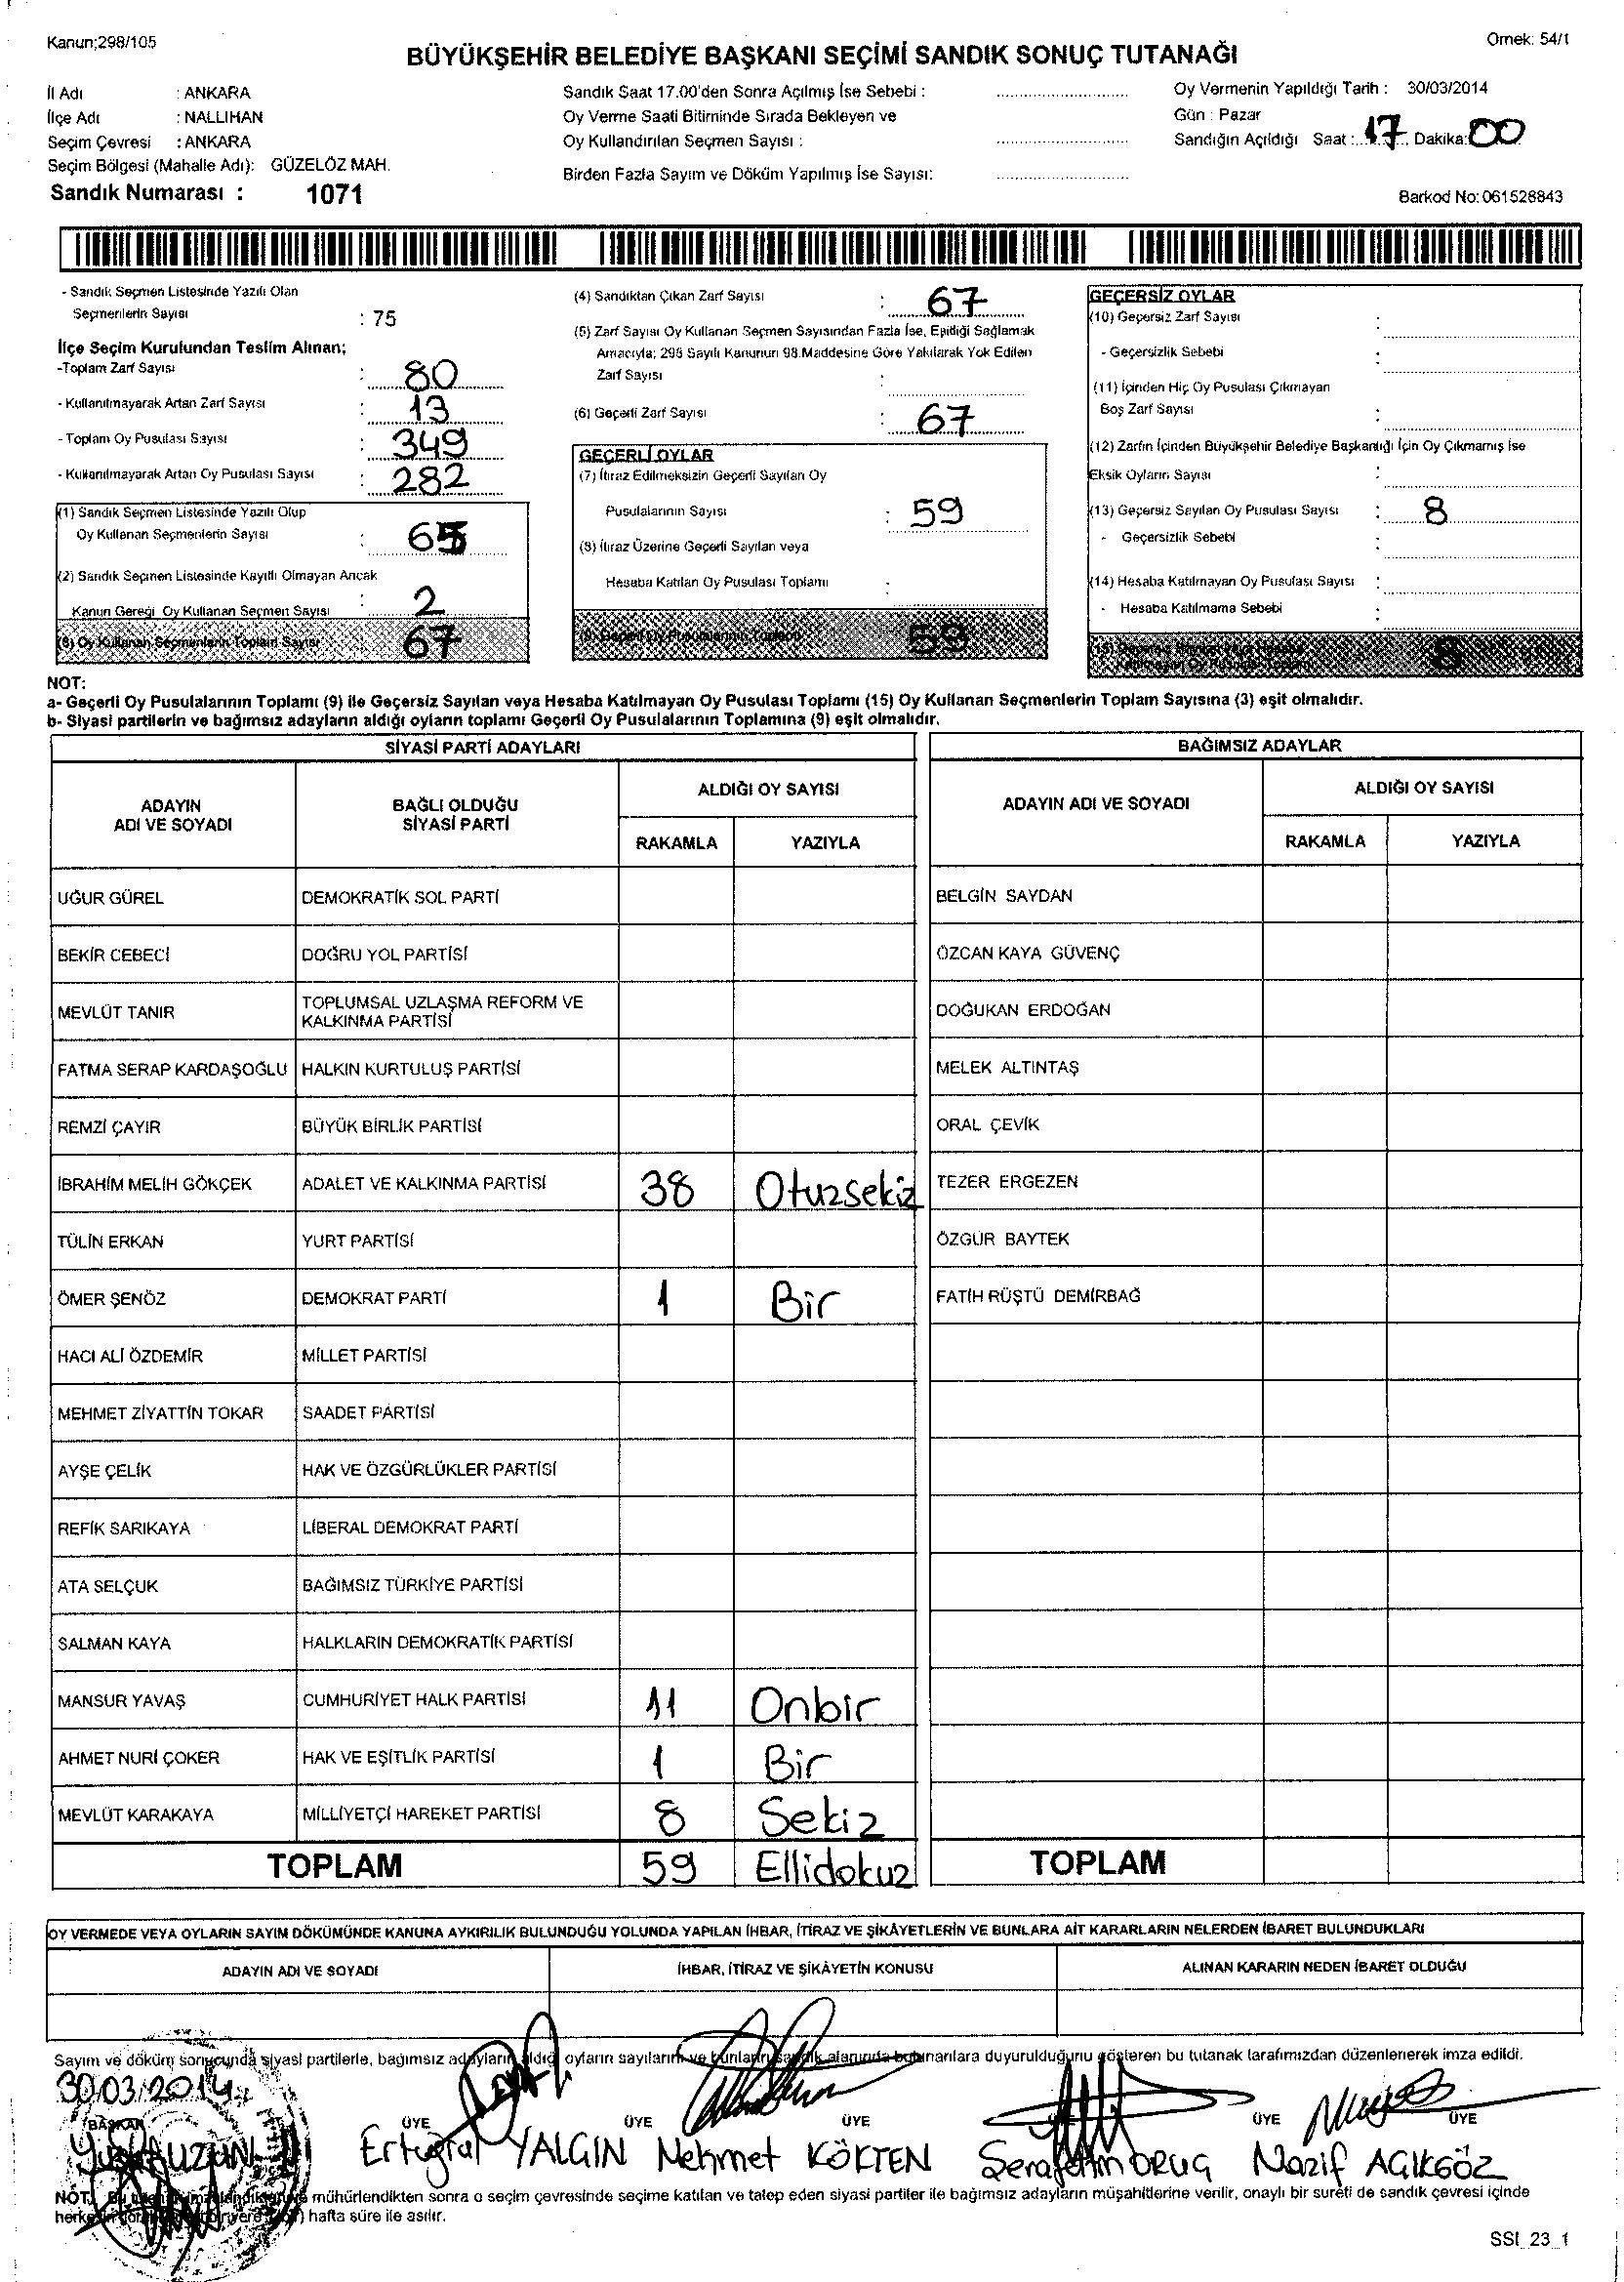 Kanun;298/105
Örnek: 54/1
BÜYÜKŞEHİR BELEDİYE BAŞKANI SEÇİMİ SANDIK SONUÇ TUTANAĞI
İl Adı : ANKARA
İlçe Adı : NALLIHAN
Seçim Çevresi : ANKARA
Seçim Bölgesi (Mahalle Adı): GÜZELÖZ MAH.
Sandık Numarası : 1071
Sandık Saat 17.00'den Sonra Açılmış İse Sebebi :
Oy Verme Saati Bitiminde Sırada Bekleyen ve
Oy Kullandırılan Seçmen Sayısı :
Birden Fazla Sayım ve Döküm Yapılmış İse Sayısı:
Oy Vermenin Yapıldığı Tarih : 30/03/2014
Gün : Pazar
Sandığın Açıldığı Saat : 17 Dakika: 00
Barkod No: 061528843
- Sandık Seçmen Listesinde Yazılı Olan
Seçmenlerin Sayısı : 75
İlçe Seçim Kurulundan Teslim Alınan;
-Toplam Zarf Sayısı : 80
- Kullanılmayarak Artan Zarf Sayısı : 13
- Toplam Oy Pusulası Sayısı : 349
- Kullanılmayarak Artan Oy Pusulası Sayısı : 282
(1) Sandık Seçmen Listesinde Yazılı Olup
Oy Kullanan Seçmenlerin Sayısı : 65
(2) Sandık Seçmen Listesinde Kayıtlı Olmayan Ancak
Kanun Gereği Oy Kullanan Seçmen Sayısı : 2
(3) Oy Kullanan Seçmenlerin Toplam Sayısı 67
(4) Sandıktan Çıkan Zarf Sayısı : 67
(5) Zarf Sayısı Oy Kullanan Seçmen Sayısından Fazla İse, Eşitliği Sağlamak
Amacıyla; 298 Sayılı Kanunun 98.Maddesine Göre Yakılarak Yok Edilen
Zarf Sayısı :
(6) Geçerli Zarf Sayısı : 67
GEÇERLİ OYLAR
(7) İtiraz Edilmeksizin Geçerli Sayılan Oy
Pusulalarının Sayısı : 59
(8) İtiraz Üzerine Geçerli Sayılan veya
Hesaba Katılan Oy Pusulası Toplamı :
(9) Geçerli Oy Pusulalarının Toplamı 59
GEÇERSİZ OYLAR
(10) Geçersiz Zarf Sayısı :
- Geçersizlik Sebebi :
(11) İçinden Hiç Oy Pusulası Çıkmayan
Boş Zarf Sayısı :
(12) Zarfın İçinden Büyükşehir Belediye Başkanlığı İçin Oy Çıkmamış İse
Eksik Oyların Sayısı :
(13) Geçersiz Sayılan Oy Pusulası Sayısı : 8
- Geçersizlik Sebebi :
(14) Hesaba Katılmayan Oy Pusulası Sayısı :
- Hesaba Katılmama Sebebi :
(15) Geçersiz Sayılan veya Hesaba
Katılmayan Oy Pusulası Toplamı 8
NOT:
a- Geçerli Oy Pusulalarının Toplamı (9) ile Geçersiz Sayılan veya Hesaba Katılmayan Oy Pusulası Toplamı (15) Oy Kullanan Seçmenlerin Toplam Sayısına (3) eşit olmalıdır.
b- Siyasi partilerin ve bağımsız adayların aldığı oyların toplamı Geçerli Oy Pusulalarının Toplamına (9) eşit olmalıdır.
SİYASİ PARTİ ADAYLARI
ADAYIN
ADI VE SOYADI
BAĞLI OLDUĞU
SİYASİ PARTİ
ALDIĞI OY SAYISI
RAKAMLA YAZIYLA
UĞUR GÜREL DEMOKRATİK SOL PARTİ
BEKİR CEBECİ DOĞRU YOL PARTİSİ
MEVLÜT TANIR TOPLUMSAL UZLAŞMA REFORM VE
KALKINMA PARTİSİ
FATMA SERAP KARDAŞOĞLU HALKIN KURTULUŞ PARTİSİ
REMZİ ÇAYIR BÜYÜK BİRLİK PARTİSİ
İBRAHİM MELİH GÖKÇEK ADALET VE KALKINMA PARTİSİ 38 Otuzsekiz
TÜLİN ERKAN YURT PARTİSİ
ÖMER ŞENÖZ DEMOKRAT PARTİ 1 Bir
HACI ALİ ÖZDEMİR MİLLET PARTİSİ
MEHMET ZİYATTİN TOKAR SAADET PARTİSİ
AYŞE ÇELİK HAK VE ÖZGÜRLÜKLER PARTİSİ
REFİK SARIKAYA LİBERAL DEMOKRAT PARTİ
ATA SELÇUK BAĞIMSIZ TÜRKİYE PARTİSİ
SALMAN KAYA HALKLARIN DEMOKRATİK PARTİSİ
MANSUR YAVAŞ CUMHURİYET HALK PARTİSİ 11 Onbir
AHMET NURİ ÇOKER HAK VE EŞİTLİK PARTİSİ 1 Bir
MEVLÜT KARAKAYA MİLLİYETÇİ HAREKET PARTİSİ 8 Sekiz
TOPLAM 59 Ellidokuz
BAĞIMSIZ ADAYLAR
ADAYIN ADI VE SOYADI
ALDIĞI OY SAYISI
RAKAMLA YAZIYLA
BELGİN SAYDAN
ÖZCAN KAYA GÜVENÇ
DOĞUKAN ERDOĞAN
MELEK ALTINTAŞ
ORAL ÇEVİK
TEZER ERGEZEN
ÖZGÜR BAYTEK
FATİH RÜŞTÜ DEMİRBAĞ
TOPLAM
OY VERMEDE VEYA OYLARIN SAYIM DÖKÜMÜNDE KANUNA AYKIRILIK BULUNDUĞU YOLUNDA YAPILAN İHBAR, İTİRAZ VE ŞİKÂYETLERİN VE BUNLARA AİT KARARLARIN NELERDEN İBARET BULUNDUKLARI
ADAYIN ADI VE SOYADI İHBAR, İTİRAZ VE ŞİKÂYETİN KONUSU ALINAN KARARIN NEDEN İBARET OLDUĞU
Sayım ve döküm sonucunda siyasi partilerle, bağımsız adayların aldığı oyların sayılarını ve bunların sandık alanında bulunanlara duyurulduğunu gösteren bu tutanak tarafımızdan düzenlenerek imza edildi.
30.03.2014
BAŞKAN ÜYE ÜYE ÜYE ÜYE ÜYE
UZUN Ertuğral YALGIN Mehmet KÖKTEN Serafettin ORUÇ Nazif AÇIKGÖZ
NOT: mühürlendikten sonra o seçim çevresinde seçime katılan ve talep eden siyasi partiler ile bağımsız adayların müşahitlerine verilir, onaylı bir sureti de sandık çevresi içinde
hafta süre ile asılır.
SSI_23_1